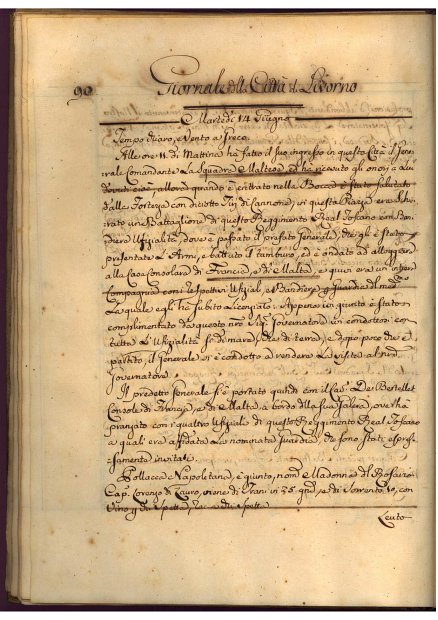 90 Giornale della Città di Livorno
Martedì 14 Giugno
Tempo chiaro, e Vento a Greco.
Alle ore 11. di Mattina ha fatto il suo ingresso in questa Città il Gene-
rale Comandante La Squadra Maltese, e ha ricevuto gli onori a Lui
dovuti cioè, allorchè quando è entrato nella Bocca è stato salutato
dalla Fortezza con diciotto Tiri di Cannone; in questa Piazza era schie-
rato un Battaglione di questo Reggimento Real Toscano con Ban-
diera Uffizialità, dove è passato il prefato Generale, che gli è stato
presentate L'Armi, e battuto il tamburo, ed è andato ad alloggiare
alla Casa Consolare di Francia, e di Malta, e quivi era un intera
Compagnia con i respettivi Ufiziali, e Bandiera
La quale egli ha subito Licenziato: Appena ivi giunto è stato
complimentato da questo nro Sig. Governatore in condottosi con
tutta L'Ufizialità sì di mare, che di terra, e dopo poco che è
partito, il Generale si è condotto a rendere La visita al nro
Governatore.
Il predetto Generale si è portato quindi con il Cas. De Bertellet
Console di Francia, e di Malta a bordo della sua Galera, ove ha
pranzato con i quattro Ufiziali di questo Reggimento Real Toscano
a quali era affidata La nominata Guardia, che sono stati espres-
samente invitati.
Pollacca Napoletana, è giunta, nom Madonna del Rosario
Cap. Lorenzo di Lauro, viene di Trani in 35 gni, e di Sorrento 10, con
Vino p
Leuto